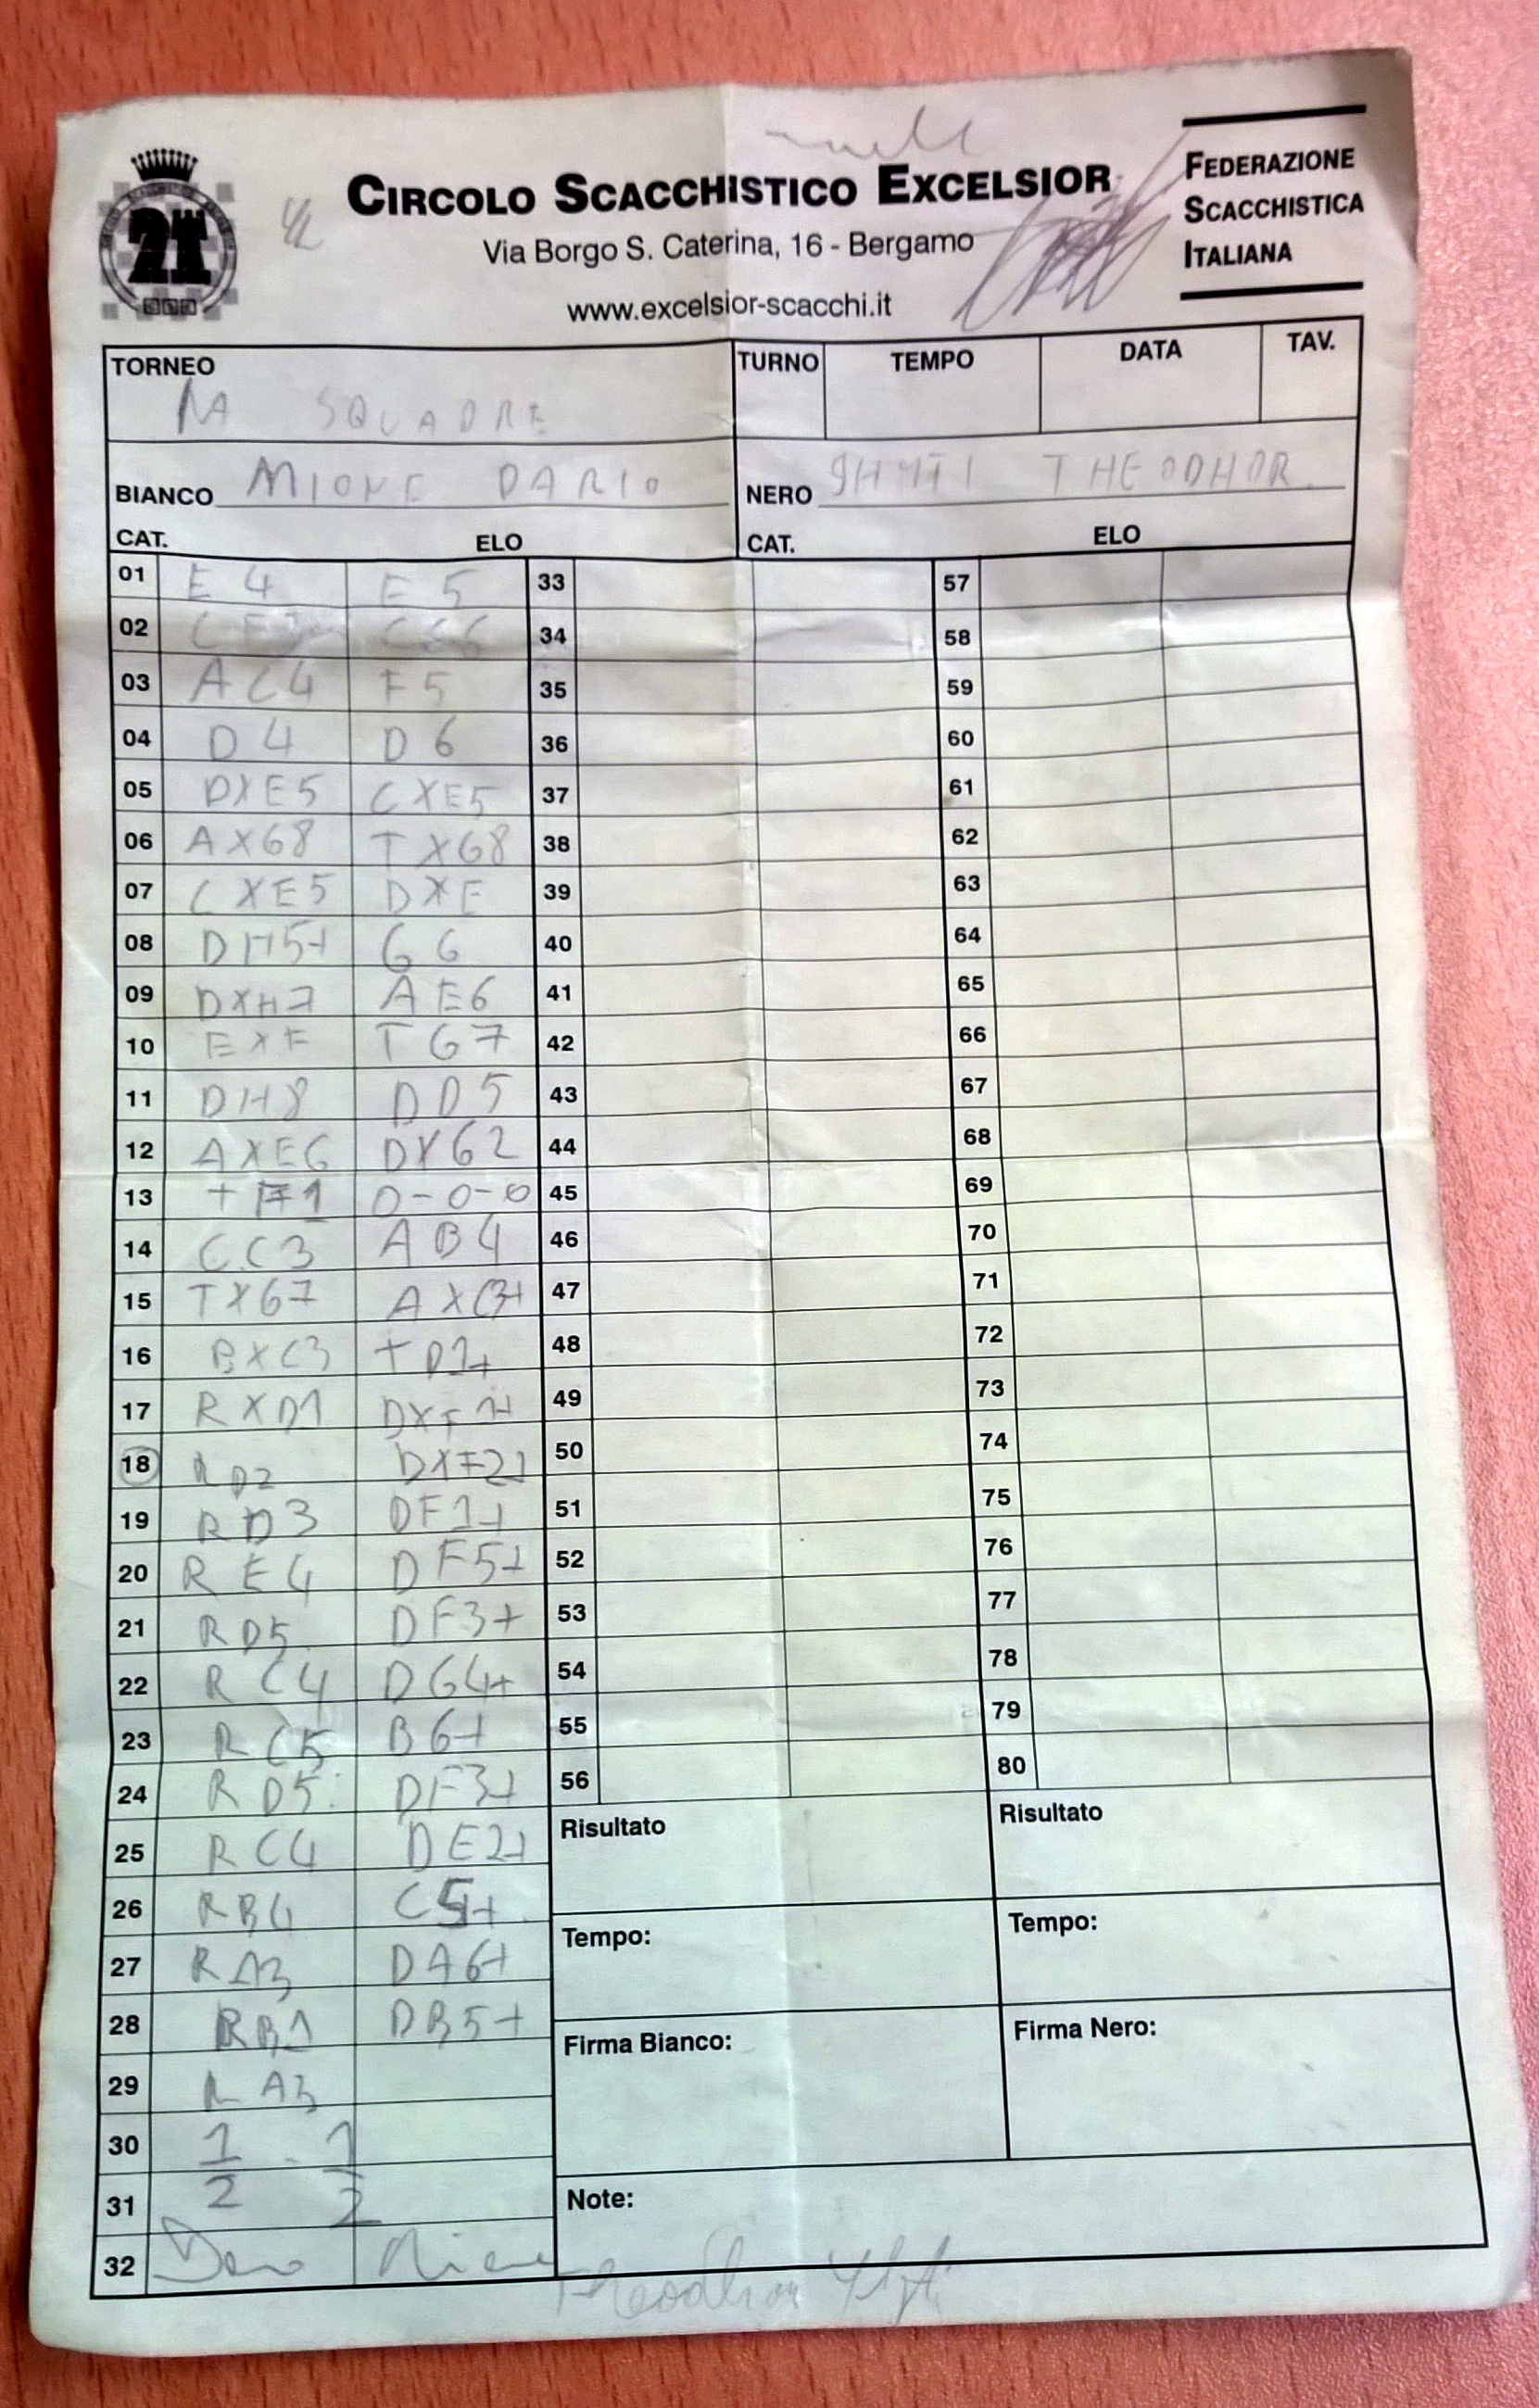 21
CIRCOLO SCACCHISTICO EXCELSIOR
Via Borgo S. Caterina, 16 - Bergamo
www.excelsior-scacchi.it
FEDERAZIONE
SCACCHISTICA
ITALIANA
TORNEO TURNO TEMPO DATA TAV.
SQUADRE
BIANCO MIONE DARIO NERO THEODHOR
CAT. ELO CAT. ELO
01 E4 E5 33 57
02 34 58
03 AC4 F5 35 59
04 D4 D6 36 60
05 DXE5 CXE5 37 61
06 AXG8 TXG8 38 62
07 CXE5 DXE 39 63
08 DH5+ G6 40 64
09 DXH7 AE6 41 65
10 EXF TG7 42 66
11 DH8 DD5 43 67
12 AXE6 DXG2 44 68
13 TF1 0-0-0 45 69
14 CC3 AB4 46 70
15 TXG7 AXC3+ 47 71
16 BXC3 TD1+ 48 72
17 RXD1 DXF1+ 49 73
18 RD2 DXF2+ 50 74
19 RD3 DF1+ 51 75
20 RE4 DF5+ 52 76
21 RD5 DF3+ 53 77
22 RC4 DG4+ 54 78
23 RC5 B6+ 55 79
24 RD5 DF3+ 56 80
25 RC4 DE2+ Risultato Risultato
26 RB4 C5+
27 RA3 DA6+ Tempo: Tempo:
28 RB1 DB5+ Firma Bianco: Firma Nero:
29 RA3
30 1/2 - 1/2
31 Note:
32